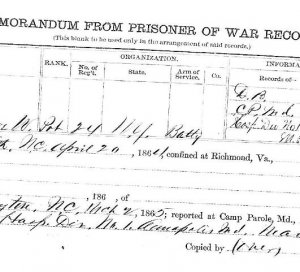 EMORANDUM FROM PRISONER OF WAR RECO
(This blank to be used only in the arrangement of said records.)
ORGANIZATION.
INFORMA
RANK.
No. of
Reg't.
State.
Arm of
Service.
Co.
Records of—
W. Pvt 24 N.Y. Batty
C.P. Md.
N.C. April 20, 1864, confined at Richmond, Va.,
, 186 of
N.C. Mch 2, 1865; reported at Camp Parole, Md.,
Hosp. Div. No. 1, Annapolis Md. Mar
Copied by